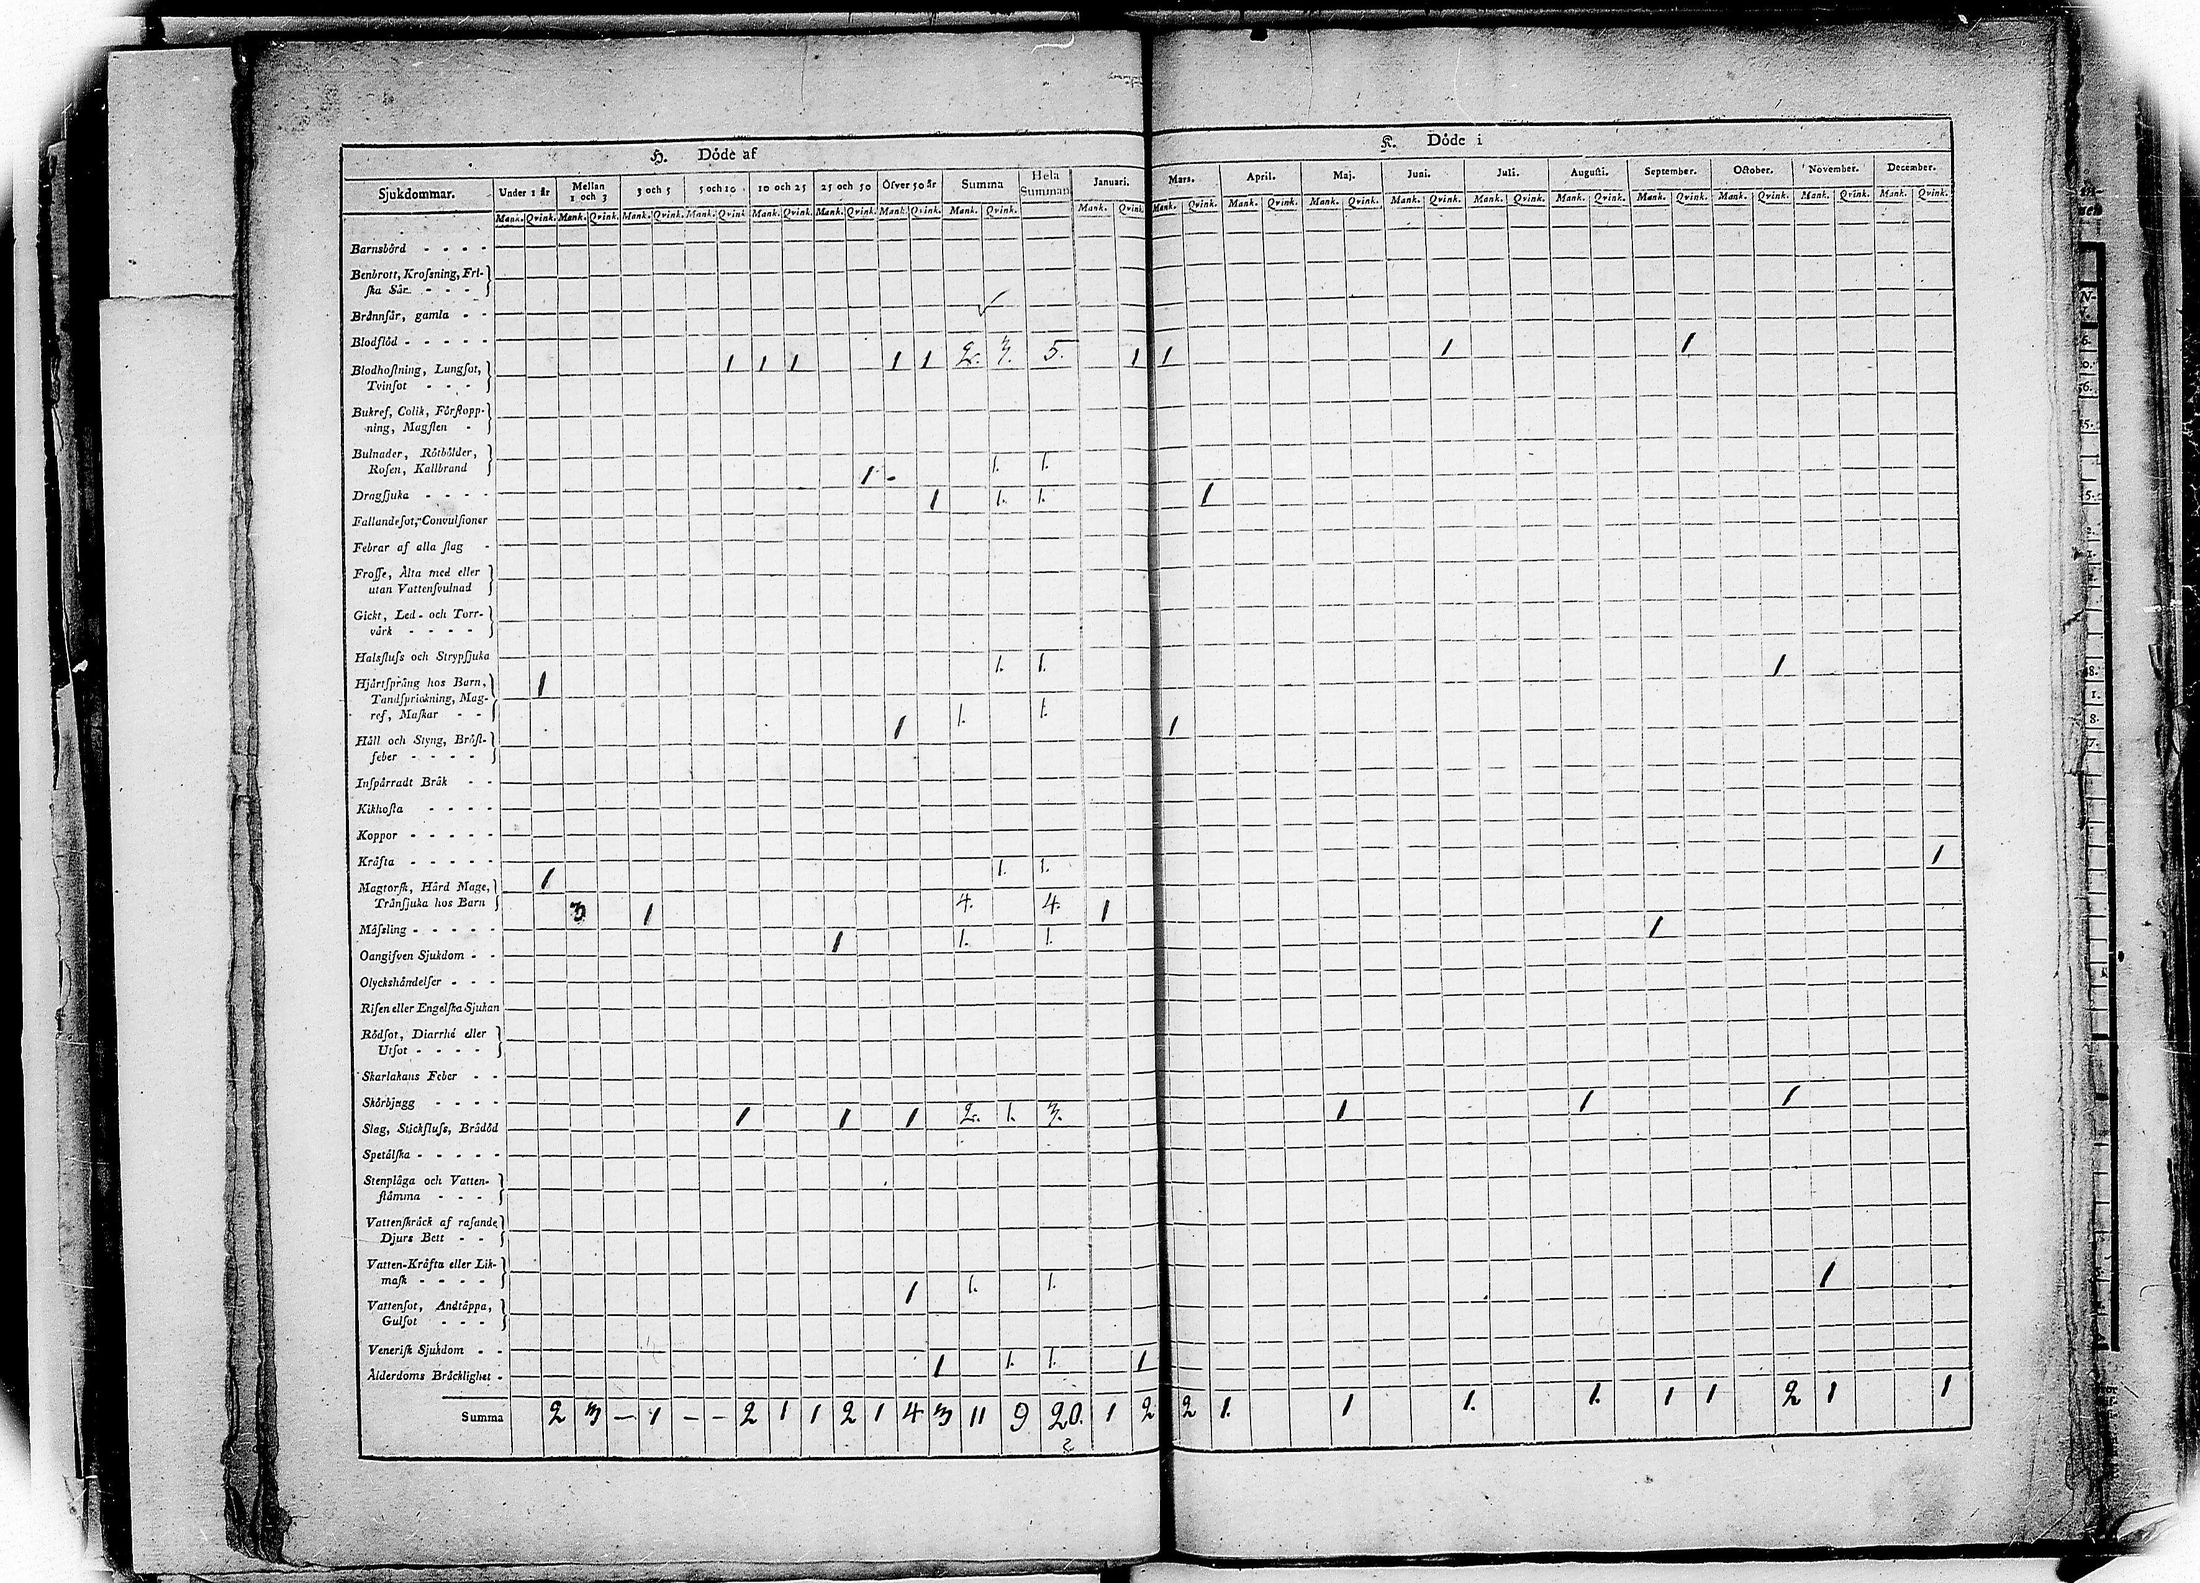 H. Döde af K. Döde i
Sjukdommar. Under 1 år Mellan 1 och 3 3 och 5 5 och 10 10 och 25 25 och 50 Öfver 50 år Summa Hela Summan Januari. Mars. April. Maj. Juni. Juli. Augusti. September. October. November. December.
Mank. Qvink. Mank. Qvink. Mank. Qvink. Mank. Qvink. Mank. Qvink. Mank. Qvink. Mank. Qvink. Mank. Qvink. Mank. Qvink. Mank. Qvink. Mank. Qvink. Mank. Qvink. Mank. Qvink. Mank. Qvink. Mank. Qvink. Mank. Qvink. Mank. Qvink. Mank. Qvink. Mank. Qvink.
Barnsbörd - - - -
Benbrott, Krosſning, Fri-
ſka Sår - - -
Brånnſår, gamla - -
Blodflöd - - - - -
1 1 1 1 1 2. 3. 5. 1 1 1 1
Blodhoſtning, Lungſot,
Tvinſot - - -
Bukref, Colik, Förſtopp-
ning, Magſten -
Bulnader, Rötbölder,
Roſen, Kallbrand
1 - 1. 1.
Dragſjuka - - - -
1 1. 1. 1
Fallandeſot, Convulſioner
Febrar af alla ſlag -
Froſſe, Ålta med eller
utan Vattenſvulnad
Gickt, Led- och Torr-
värk - - - -
Halsfluſs och Strypſjuka
1 1. 1. 1
Hjärtſprång hos Barn,
Tandſprickning, Mag-
ref, Maſkar - -
1 1. 1. 1
Håll och Styng, Bröſt-
feber - - - -
Inſpärradt Bråk - -
Kikhoſta - - - -
Koppor - - - - -
Kräfta - - - - -
1 1. 1. 1
Magtorſk, Hård Mage,
Trånſjuka hos Barn
3 1 4. 4. 1
Måſsling - - - - -
1 1. 1. 1
Oangifven Sjukdom - -
Olyckshändelſer - - -
Riſen eller Engelſka Sjukan
Rödſot, Diarrhé eller
Utſot - - - -
Skarlakans Feber - -
Skörbjugg - - - -
1 1 1 2. 1. 3. 1 1 1
Slag, Stickfluſs, Brådöd
Spetälſka - - - - -
Stenplåga och Vatten-
ſtämma - - -
Vattenſkräck af raſande
Djurs Bett - -
Vatten-Kräfta eller Lik-
maſk - - - -
1 1. 1. 1
Vattenſot, Andtäppa,
Gulſot - - -
Veneriſk Sjukdom - -
1 1. 1. 1
Ålderdoms Bräcklighet -
Summa 2 3 — 1 — — 2 1 1 2 1 4 3 11 9 20. 1 2 2 1. 1 1. 1. 1 1 2 1 1